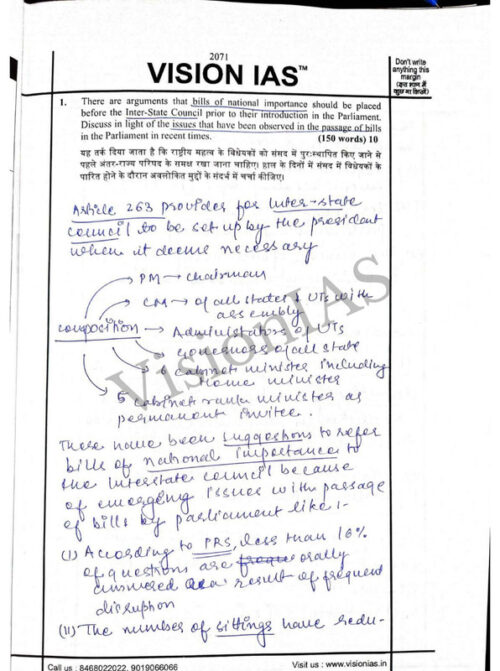 2071
VISION IAS™
Don't write
anything this
margin
(इस भाग में
कुछ ना लिखें)
1. There are arguments that bills of national importance should be placed
before the Inter-State Council prior to their introduction in the Parliament.
Discuss in light of the issues that have been observed in the passage of bills
in the Parliament in recent times. (150 words) 10
यह तर्क दिया जाता है कि राष्ट्रीय महत्व के विधेयकों को संसद में पुरःस्थापित किए जाने से
पहले अंतर-राज्य परिषद के समक्ष रखा जाना चाहिए। हाल के दिनों में संसद में विधेयकों के
पारित होने के दौरान अवलोकित मुद्दों के संदर्भ में चर्चा कीजिए।
Article 263 provides for Inter-state
council to be set up by the president
when it deems necessary
PM → chairman
CM → of all states & UTs with
assembly
composition → Administrators of UTs
governors of all state
6 cabinet minister including
Home minister
5 cabinet rank minister as
permanent invitee.
There have been suggestions to refer
bills of national importance to
the Interstate council because
of emerging issues with passage
of bills by parliament like :-
(I) According to PRS, less than 10%
of questions are orally
answered as a result of frequent
disruption
(II) The number of sittings have redu-
VisionIAS
Call us : 8468022022, 9019066066
Visit us : www.visionias.in